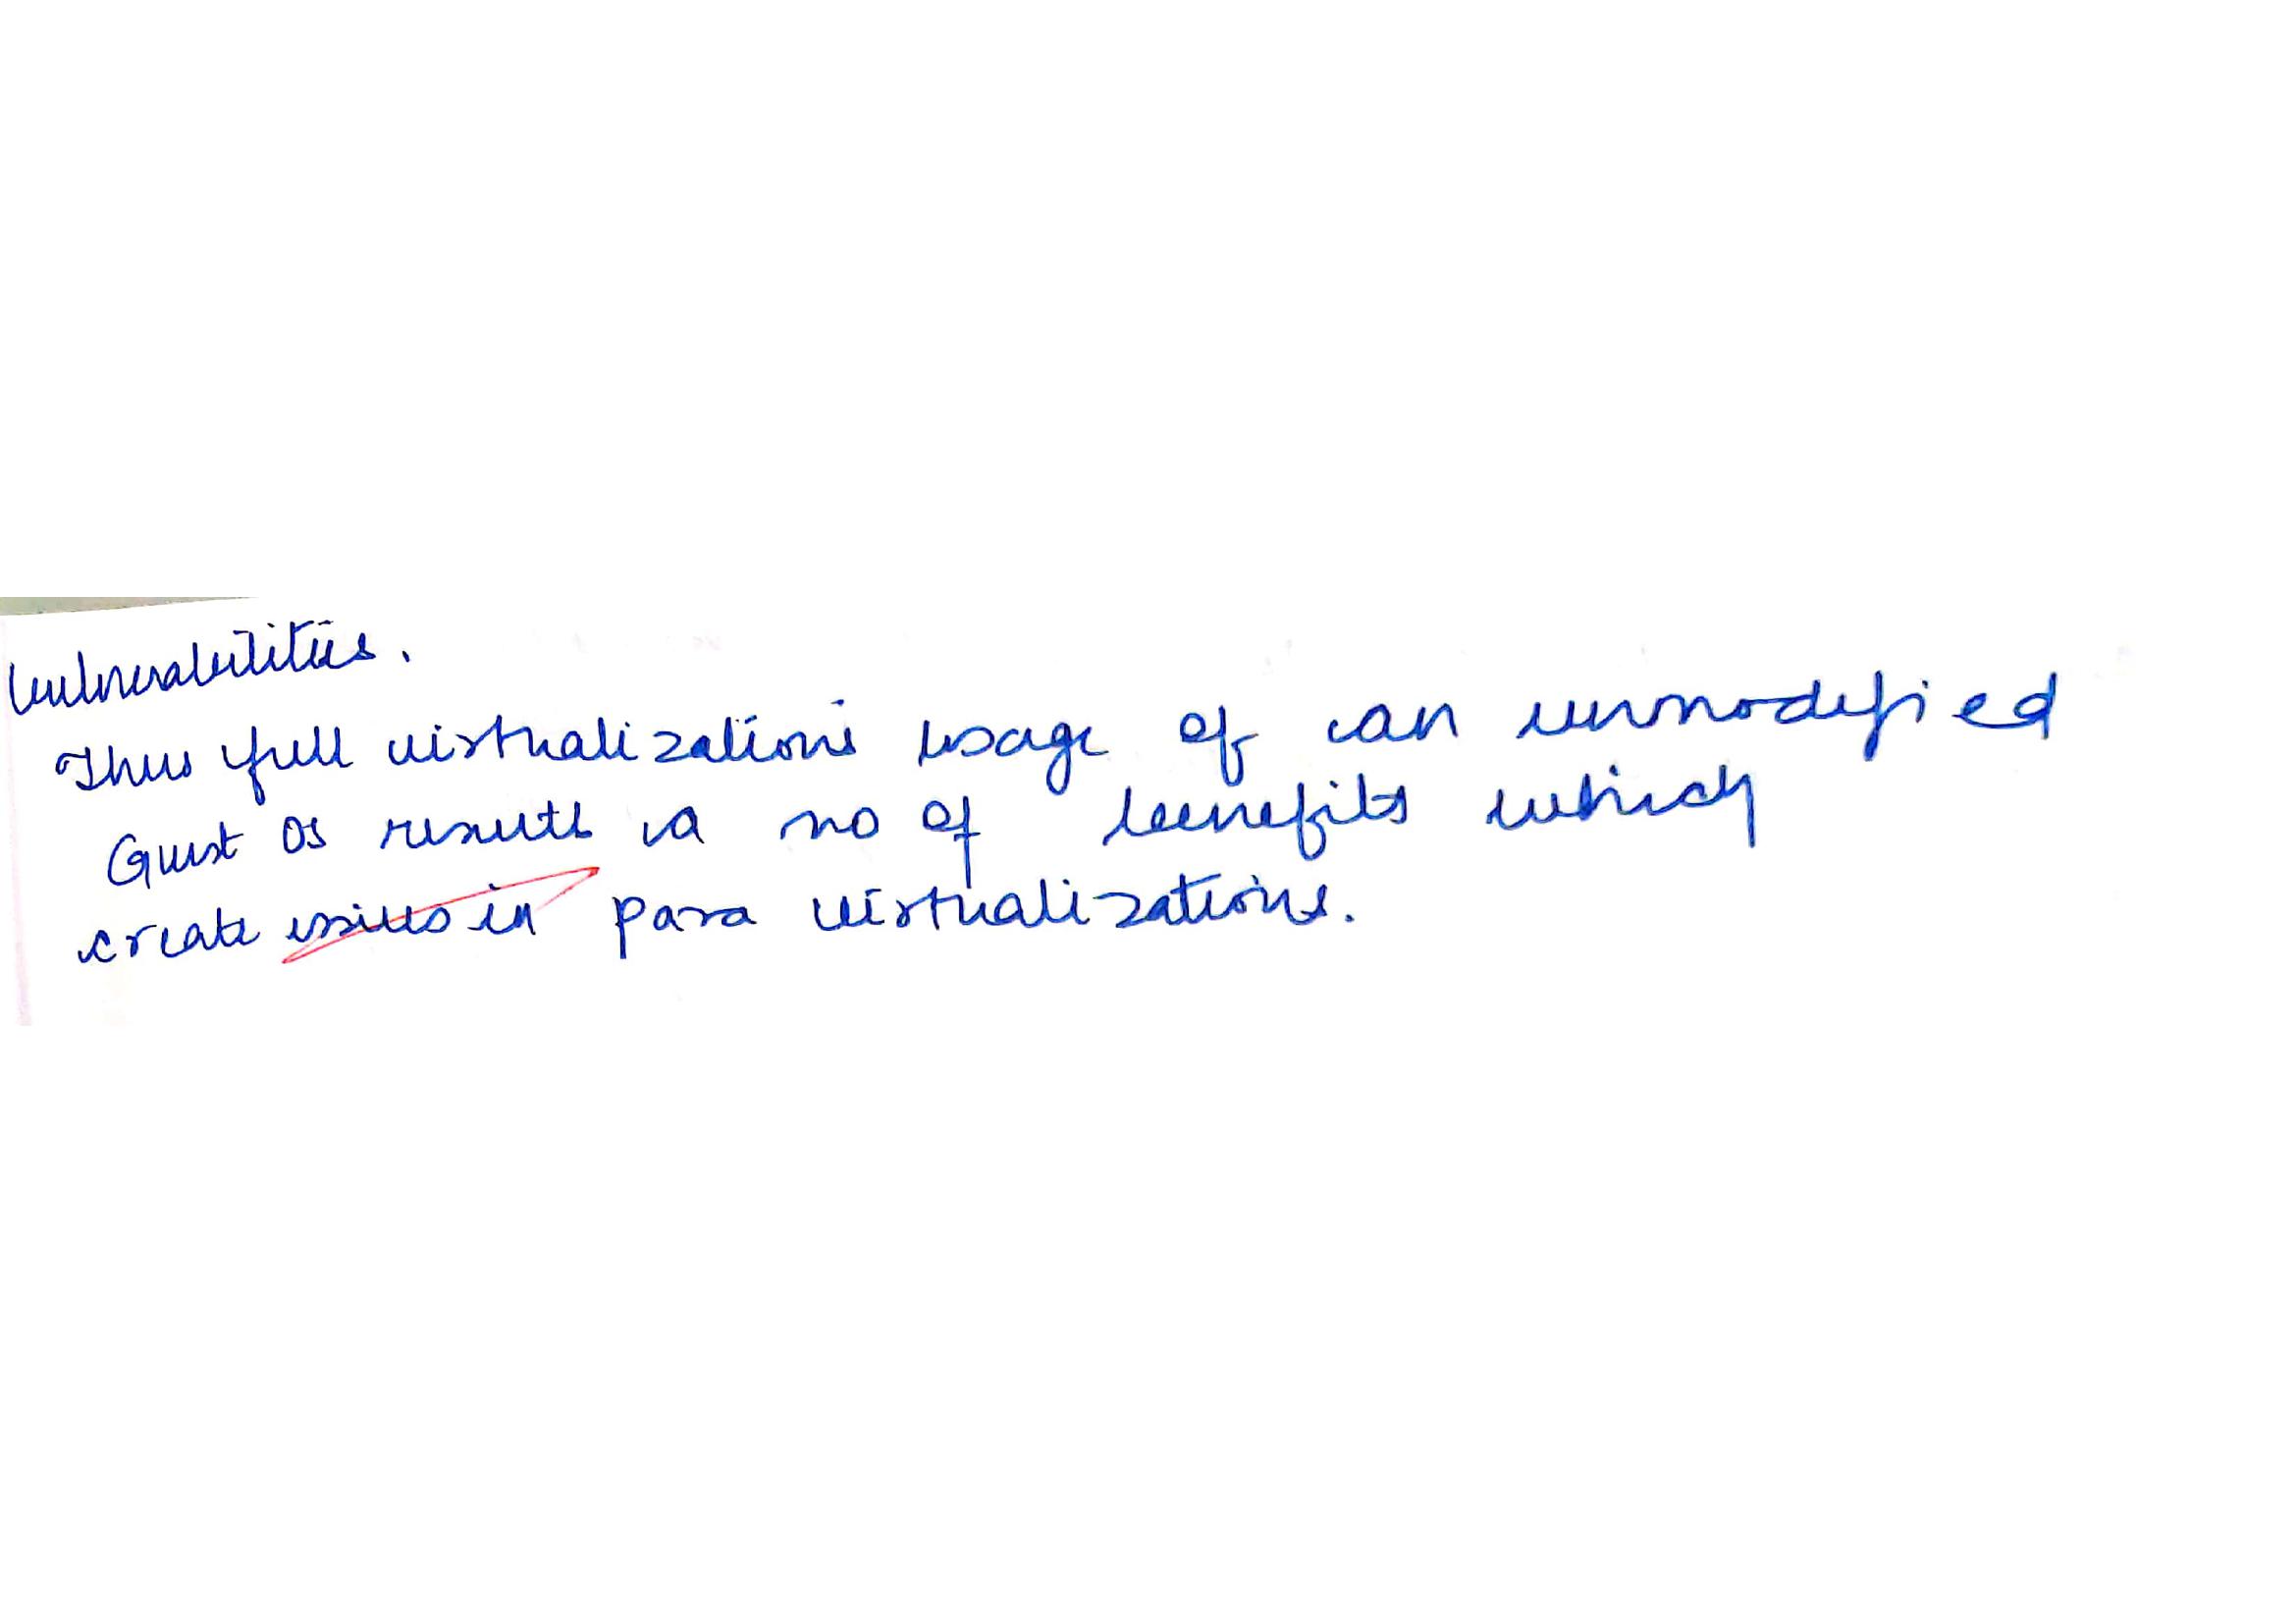 Vulnerabilities.
Thus full virtualizations usage of can unmodified
Guest OS results in no of benefits which
create issues in para virtualizations.